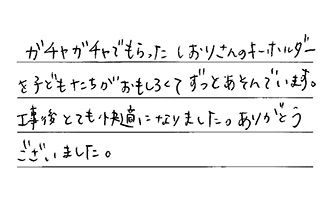 ガチャガチャでもらったしおりさんのキーホルダー
を子どもたちがおもしろくてずっとあそんでいます。
工事後とても快適になりました。ありがとう
ございました。